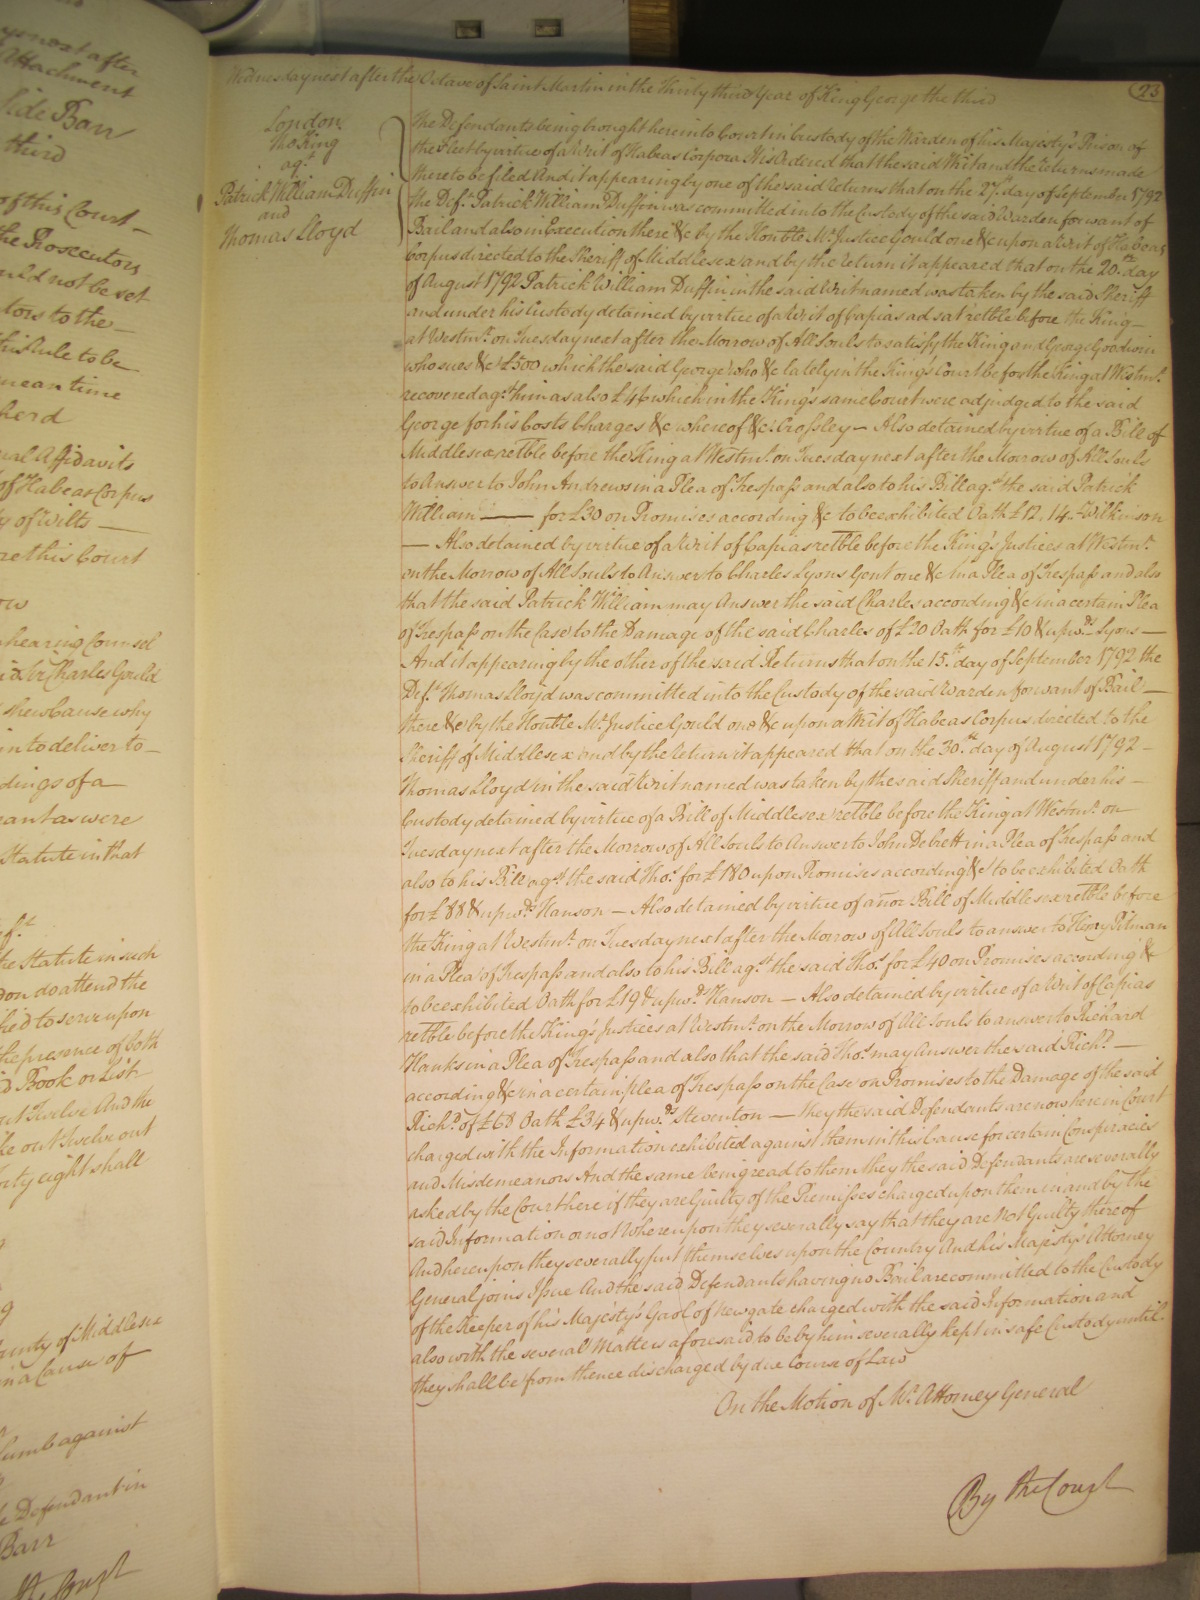 upon next after
Attachment
Side Barr
third
of this Court
the Prosecutors
uld not be set
tors to the
this Rule to be
mean time
herd
ual Affidavits
of Habeas Corpus
y of Wilts
re this Court
ow
hearing Counsel
Sir Charles Gould
shew Cause why
in to deliver to
dings of a
ant as were
Statute in that
the Statute in such
don do attend the
fied to serve upon
the presence of both
id Book or List
out Twelve And the
ke out Twelve out
orty eight shall
g
ounty of Middlesex
in a Cause of
Lumb against
Defendant in
Barr
the Court
23
Wednesday next after the Octave of Saint Martin in the Thirty third Year of King George the third
London.
The King
agt.
Patrick William Duffin
and
Thomas Lloyd
The Defendants being brought here into Court in Custody of the Warden of his Majesty's Prison of
the Fleet by virtue of a Writ of Habeas Corpora It is Ordered that the said Writ and the Returns made
thereto be filed And it appearing by one of the said Returns that on the 27th. day of September 1792
the Deft. Patrick William Duffin was committed into the Custody of the said Warden for want of
Bail and also in Execution there &c by the Honble Mr. Justice Gould one &c upon a Writ of Habeas
Corpus directed to the Sheriff of Middlesex and by the return it appeared that on the 20th. day
of August 1792 Patrick William Duffin in the said Writ named was taken by the said Sheriff
and under his Custody detained by virtue of a Writ of Capias ad sat retble before the King
at Westmr. on Tuesday next after the Morrow of All Souls to satisfy the King and George Goodwin
who sues &c £500 which the said George who &c lately in the King's Court before the King at Westmr.
recovered agt. him as also £46 which in the King's same Court were adjudged to the said
George for his Costs Charges &c whereof &c: Crossley — Also detained by virtue of a Bill of
Middlesex retble before the King at Westmr. on Tuesday next after the Morrow of All Souls
to Answer to John Andrews in a Plea of Trespass and also to his Bill agt. the said Patrick
William —— for £30 on Promises according &c to be exhibited Oath £12. 14. Wilkinson
— Also detained by virtue of a Writ of Capias retble before the King's Justices at Westmr.
on the Morrow of All Souls to Answer to Charles Lyons Gent one &c in a Plea of Trespass and also
that the said Patrick William may Answer the said Charles according &c in a certain Plea
of Trespass on the Case to the Damage of the said Charles of £20 Oath for £10 & upwds. Lyons —
And it appearing by the other of the said Returns that on the 15th. day of September 1792 the
Deft. Thomas Lloyd was committed into the Custody of the said Warden for want of Bail —
there &c by the Honble Mr. Justice Gould one &c upon a Writ of Habeas Corpus directed to the
Sheriff of Middlesex and by the return it appeared that on the 30th. day of August 1792 —
Thomas Lloyd in the said Writ named was taken by the said Sheriff and under his —
Custody detained by virtue of a Bill of Middlesex retble before the King at Westmr. on
Tuesday next after the Morrow of All Souls to Answer to John Debrett in a Plea of Trespass and
also to his Bill agt. the said Thos. for £180 upon Promises according &c to be exhibited Oath
for £88 & upwds. Hanson — Also detained by virtue of anor. Bill of Middlesex retble before
the King at Westmr. on Tuesday next after the Morrow of All Souls to answer to Henry Pitman
in a Plea of Trespass and also to his Bill agt. the said Thos. for £40 on Promises according &c
to be exhibited Oath for £19 & upwds. Hanson — Also detained by virtue of a Writ of Capias
retble before the King's Justices at Westmr. on the Morrow of All Souls to answer to Richard
Hanks in a Plea of Trespass and also that the said Thos. may Answer the said Richd. —
according &c in a certain plea of Trespass on the Case on Promises to the Damage of the said
Richd. of £68 Oath £34 & upwds. Steventon — they the said Defendants are now here in Court
charged with the Information exhibited against them in this Cause for certain Conspiracies
and Misdemeanors And the same being read to them they the said Defendants are severally
asked by the Court here if they are Guilty of the Premisses charged upon them in and by the
said Information or not Whereupon they severally say that they are Not Guilty thereof
And hereupon they severally put themselves upon the Country And his Majesty's Attorney
General joins Issue And the said Defendants having no Bail are committed to the Custody
of the Keeper of his Majesty's Gaol of Newgate charged with the said Information and
also with the several Matters aforesaid to be by him severally kept in safe Custody until
they shall be from thence discharged by due Course of Law
On the Motion of Mr. Attorney General
By the Court